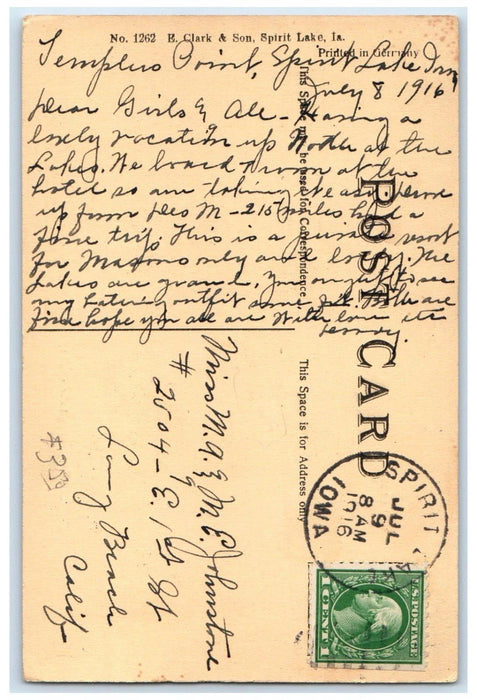 No. 1262 E. Clark & Son, Spirit Lake, Ia.
Printed in Germany
Templus Point, Spirit Lake Inn
July 8 1916
Dear Girls & All - Having a
lovely vacation up North at the
Lakes. We board & room at the
hotel so am taking
up from Des M - 215 miles. had a
fine trip. This is a resort
for Masons only and lovely. The
Lakes are grand, you ought to see
my outfit are
fine hope you all are With love
This Space may be used for Correspondence.
POST CARD
This Space is for Address only
Miss M. A. & M. E. Johnstone
# 2504 - E. 1st St
Long Beach
Calif
SPIRIT LAKE
JUL
9
8 AM
1916
IOWA
U.S. POSTAGE
1 CENT 1